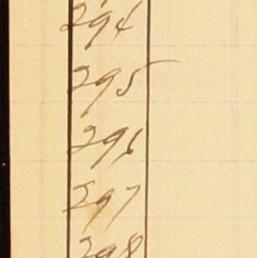 294
295
296
297
298